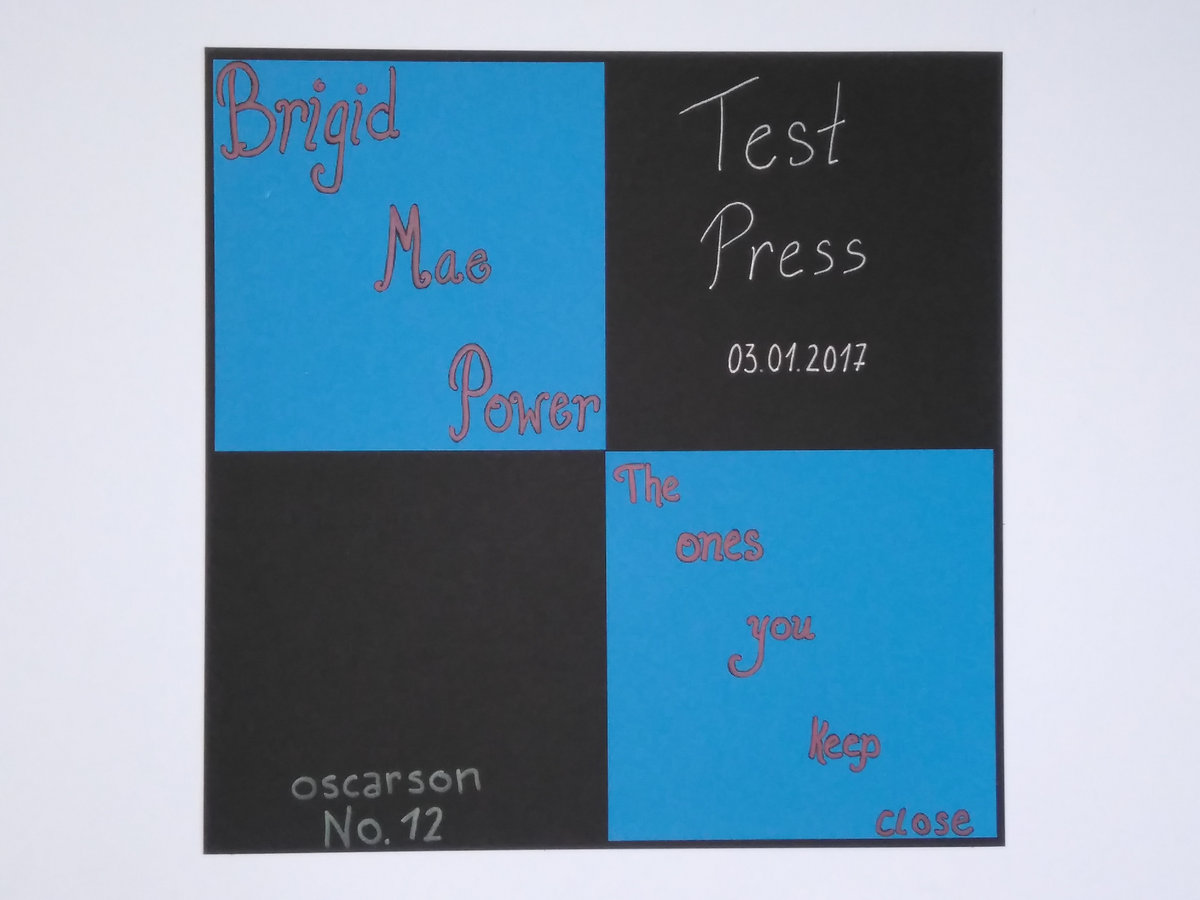 Brigid
Mae
Power
Test
Press
03.01.2017
The
ones
you
Keep
close
oscarson
No. 12